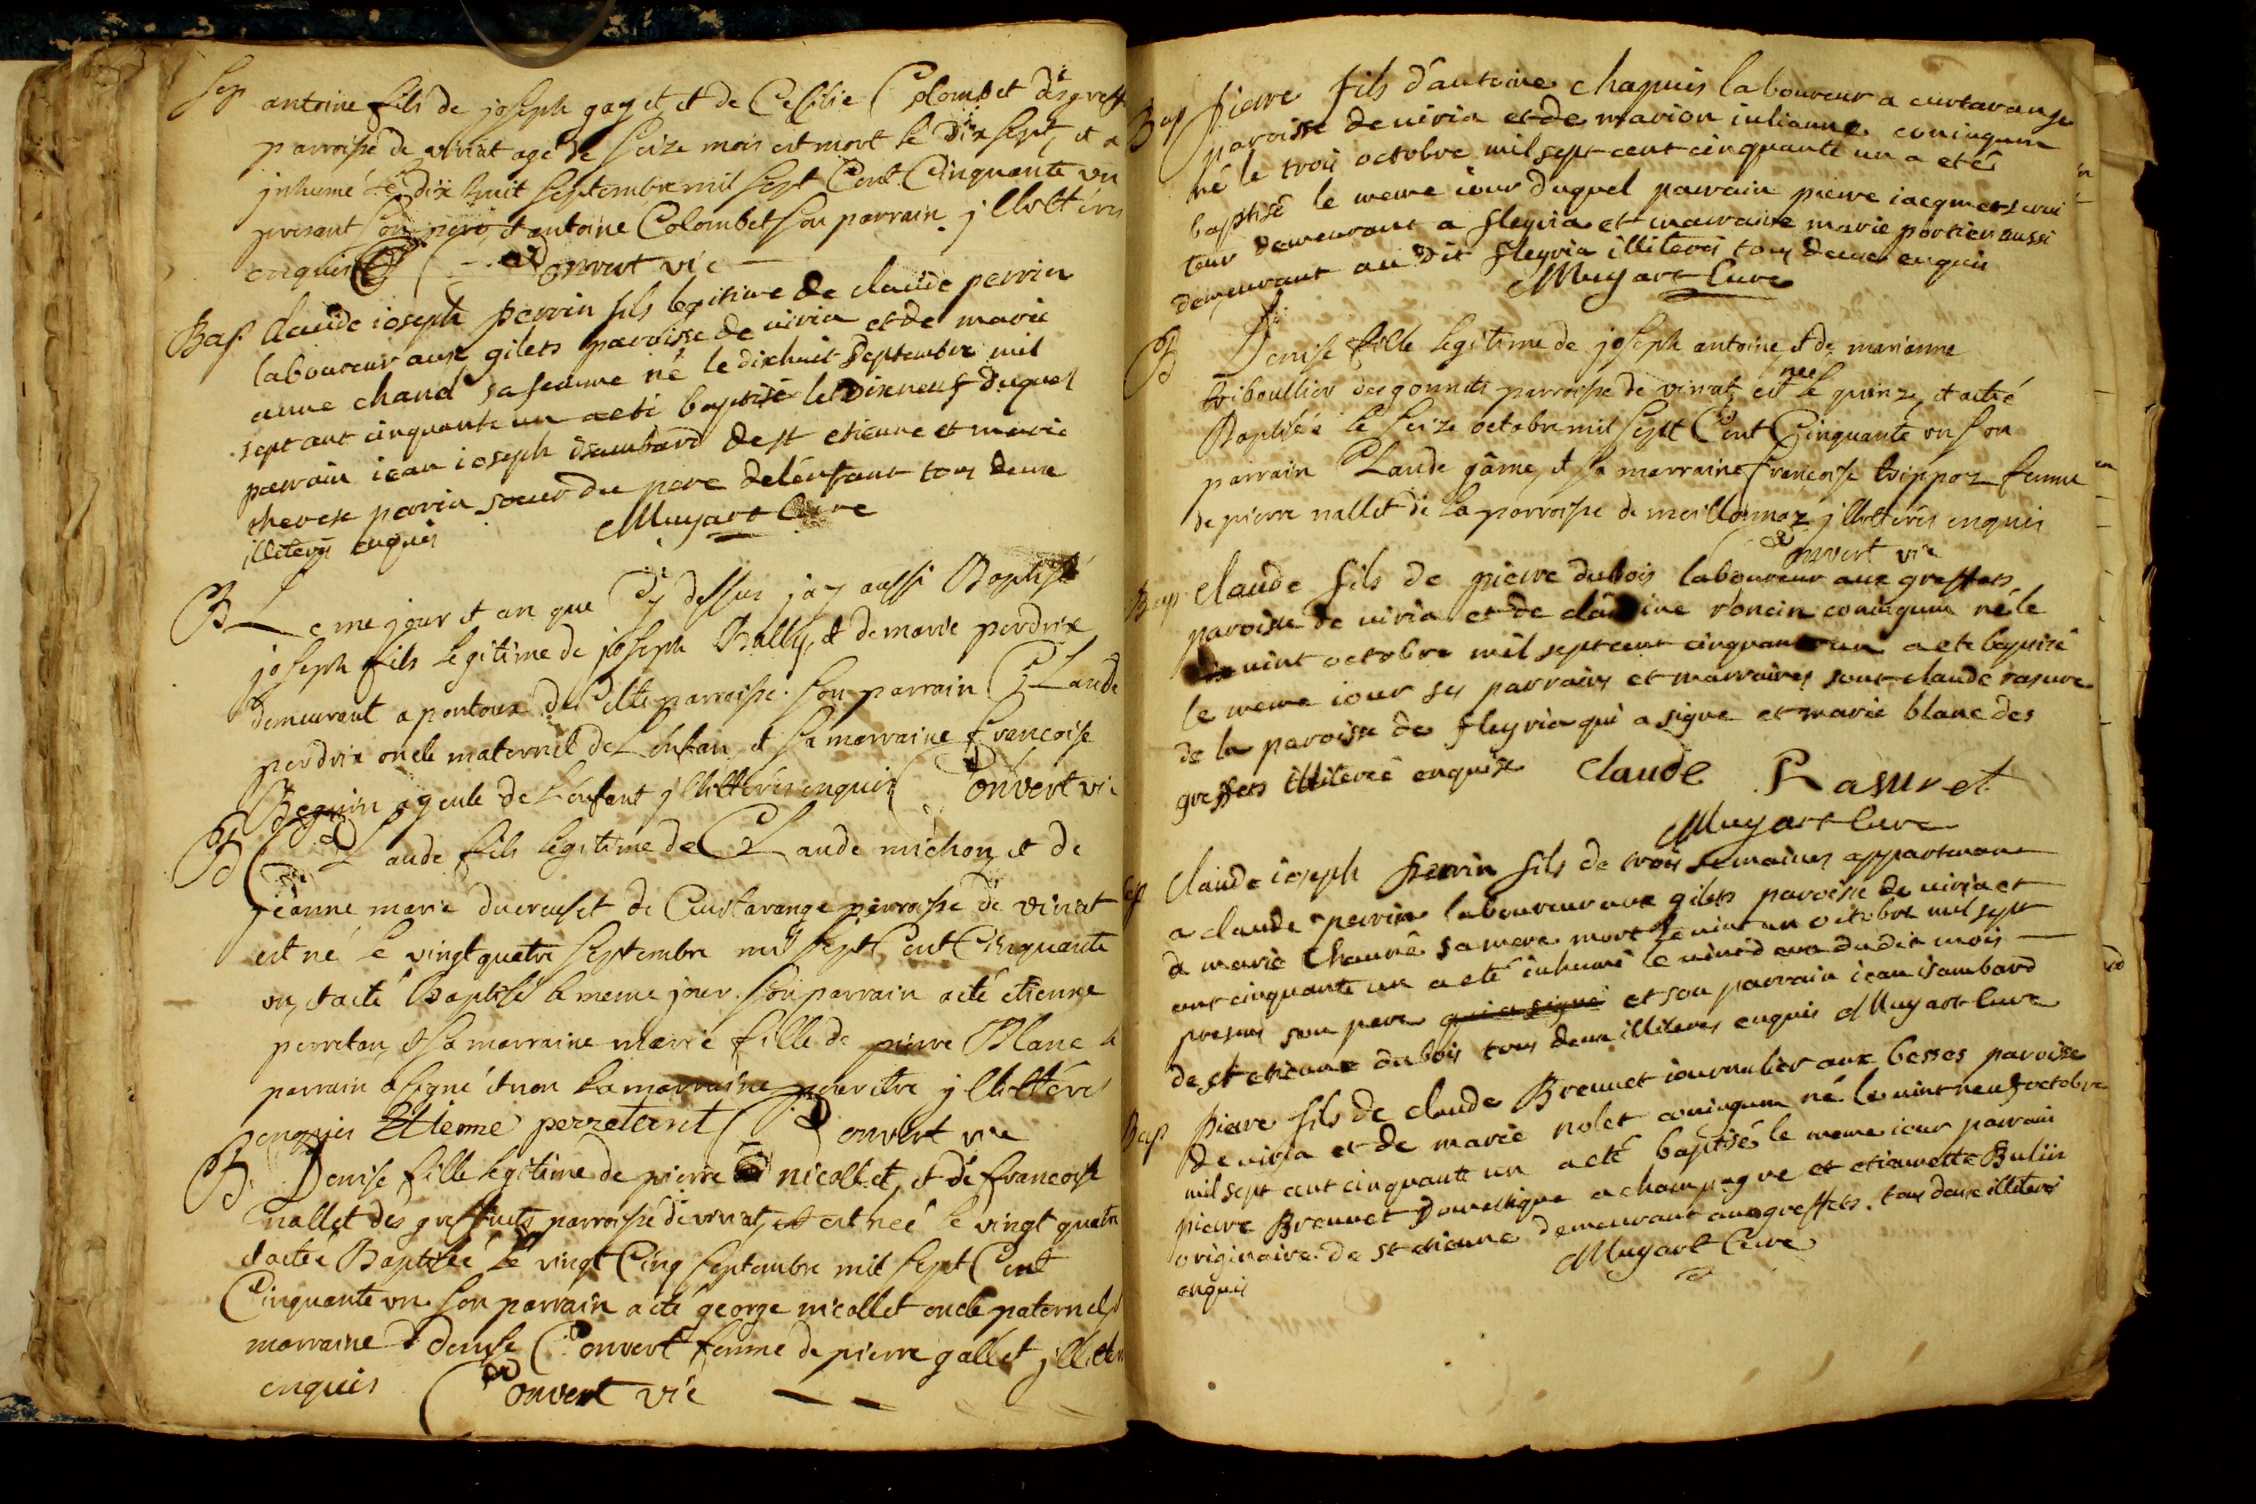 Sep antoine fils de joseph gayet et de Cecilie Colombet des greff
parroisse de viriat agé de seize mois est mort le dix sept, et a
inhumé le dix huit septembre mil sept Cent Cinquante un
present son pere, et antoine Colombet son parrain jllittérés
enquis Convert vic
Bap. claude ioseph perrin fils legitime de claude perrin
laboureur aux gilets paroisse de viria et de marie
anne chanel sa femme né le dixhuit septembre mil
sept cent cinquante un a eté baptisé le dixneuf duquel
parrain iean ioseph isambard de st etienne et marie
therese perrin soeur du pere de lenfant tous deux
illiterés enquis Muyart Cure
B Le me jour et an que Cy dessus jay aussi Baptisé
joseph fils legitime de joseph Bally, et de marie perdrix
demeurant a pontoux de Cette parroisse. son parrain Claude
perdrix oncle maternel de Lenfan, et sa marraine francoise
Beguin ayeule de Lenfant jllittérés enquis Convert vic
B Claude fils legitime de Claude michon, et de
jeanne marie ducreuset de Curtarange parroisse de viriat
est né le vingt quatre septembre mil sept Cent Cinquante
un, et a eté Baptisé le meme jour. son parrain a eté etienne
perretan, et sa marraine marie fille de pierre Blanc le
parrain a signé et non la marraine pour etre jllittérés
enquis Etienne perretent Convert vic
B. Denise fille legitime de pierre nicollet, et de francoise
nallet des greffets parroisse de viriat, est neé le vingt quatre
et a eteé Baptisée le vingt Cinq septembre mil sept Cent
Cinquante un. son parrain a eté george nicollet oncle paternel, et
marraine denise Convert femme de pierre gallet jllitter
enquis Convert vic
Bap pierre fils d'antoine chapuis laboureur a curtarange
paroisse de viria et de marion iulianne coniugum
né le trois octobre mil sept cent cinquante un a eté
baptisé le meme iour duquel parrain pierre iacquet servi
teur demeurant a fleyria et marraine marie portier aussi
demeurant au dit fleyria illiterés tous deux enquis
Muyart Cure
B Denise fille legitime de joseph antoine, et de marianne
triboullier des gonnets parroisse de viriat, est nee le quinze, et a eté
Baptisée le seize octobre mil sept Cent Cinquante un son
parrain Claude gâme, et sa marraine francoise trippoz femme
de pierre nallet de la parroisse de meillonnaz jllittérés enquis
Convert vic
Bap claude fils de pierre dubois laboureur aux greffets
paroisse de viria et de claudine roncin coniugum né le
vint octobre mil sept cent cinquante un a ete baptisé
le meme iour ses parrains et marraines sont claude rasure
de la paroisse de fleyria qui a signe et marie blanc des
greffets illiteré enquise claude Rasuret
Muyart Cure
Sep claude ioseph perrin fils de trois semaines appartenant
a claude perrin laboureur aux gilets paroisse de viria et
a marie Channé sa mere mort le vint un octobre mil sept
cent cinquante un a eté inhumé le vint deux dudit mois
presens son pere qui a signé et son parrain iean isambard
de st etienne du bois tous deux illiteres enquis Muyart Cure
Bap pierre fils de claude Brevuet iournalier aux besses paroisse
de viria et de marie nolet coniugum né le vint neuf octobre
mil sept cent cinquante un a eté baptisé le meme iour parrain
pierre Brevuet domestique a champagne et etiennette Bulin
originaire de st etienne demeurant aux greffets. tous deux illiterés
enquis Muyart Cure